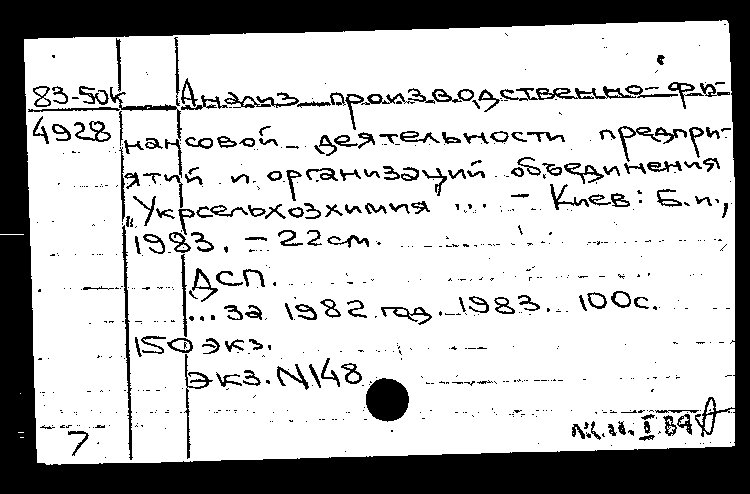 83-50к Анализ производственно-фи-
4928 нансовой деятельности предпри-
ятий и организаций объединения
„Укрсельхозхимия" ... - Киев: Б.и.,
1983. - 22см.
ДСП.
... за 1982 год. 1983. 100с.
150 экз.
экз. N148
7